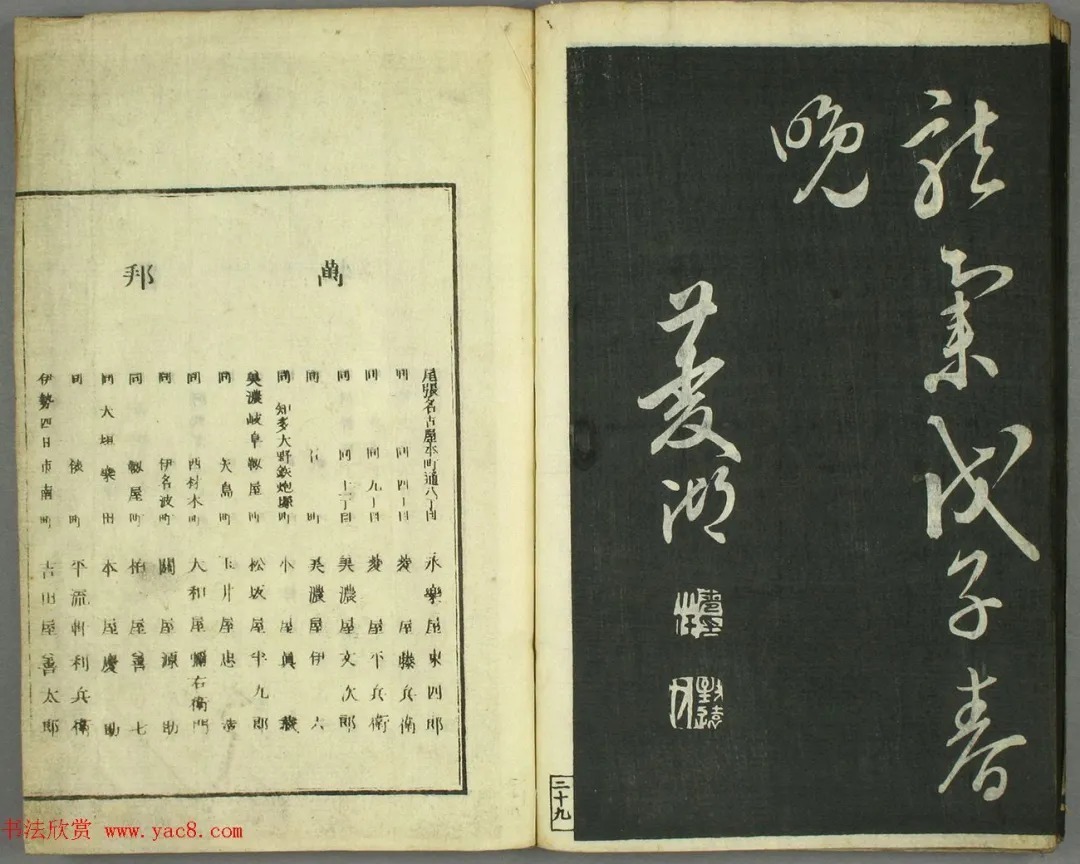 龍集戊子春
晩
菱湖
二十九
萬邦
尾張名古屋本町通八丁目 永樂屋東四郎
同 同四丁目 菱屋藤兵衛
同 同九丁目 菱屋平兵衛
同 同十一丁目 美濃屋文次郎
同 町 美濃屋伊六
同 知多大野鉄炮町 小屋眞
美濃岐阜町 松坂屋半九郎
同 矢島町 玉井屋忠
同 西材木町 大和屋彌右衛門
同 伊名波町 關屋源助
同 屋町 柏屋善七
同 大垣 本屋慶助
同 俵町 平流軒利兵衛
伊勢四日市南町 吉田屋善太郎
书法欣赏 www.yac8.com